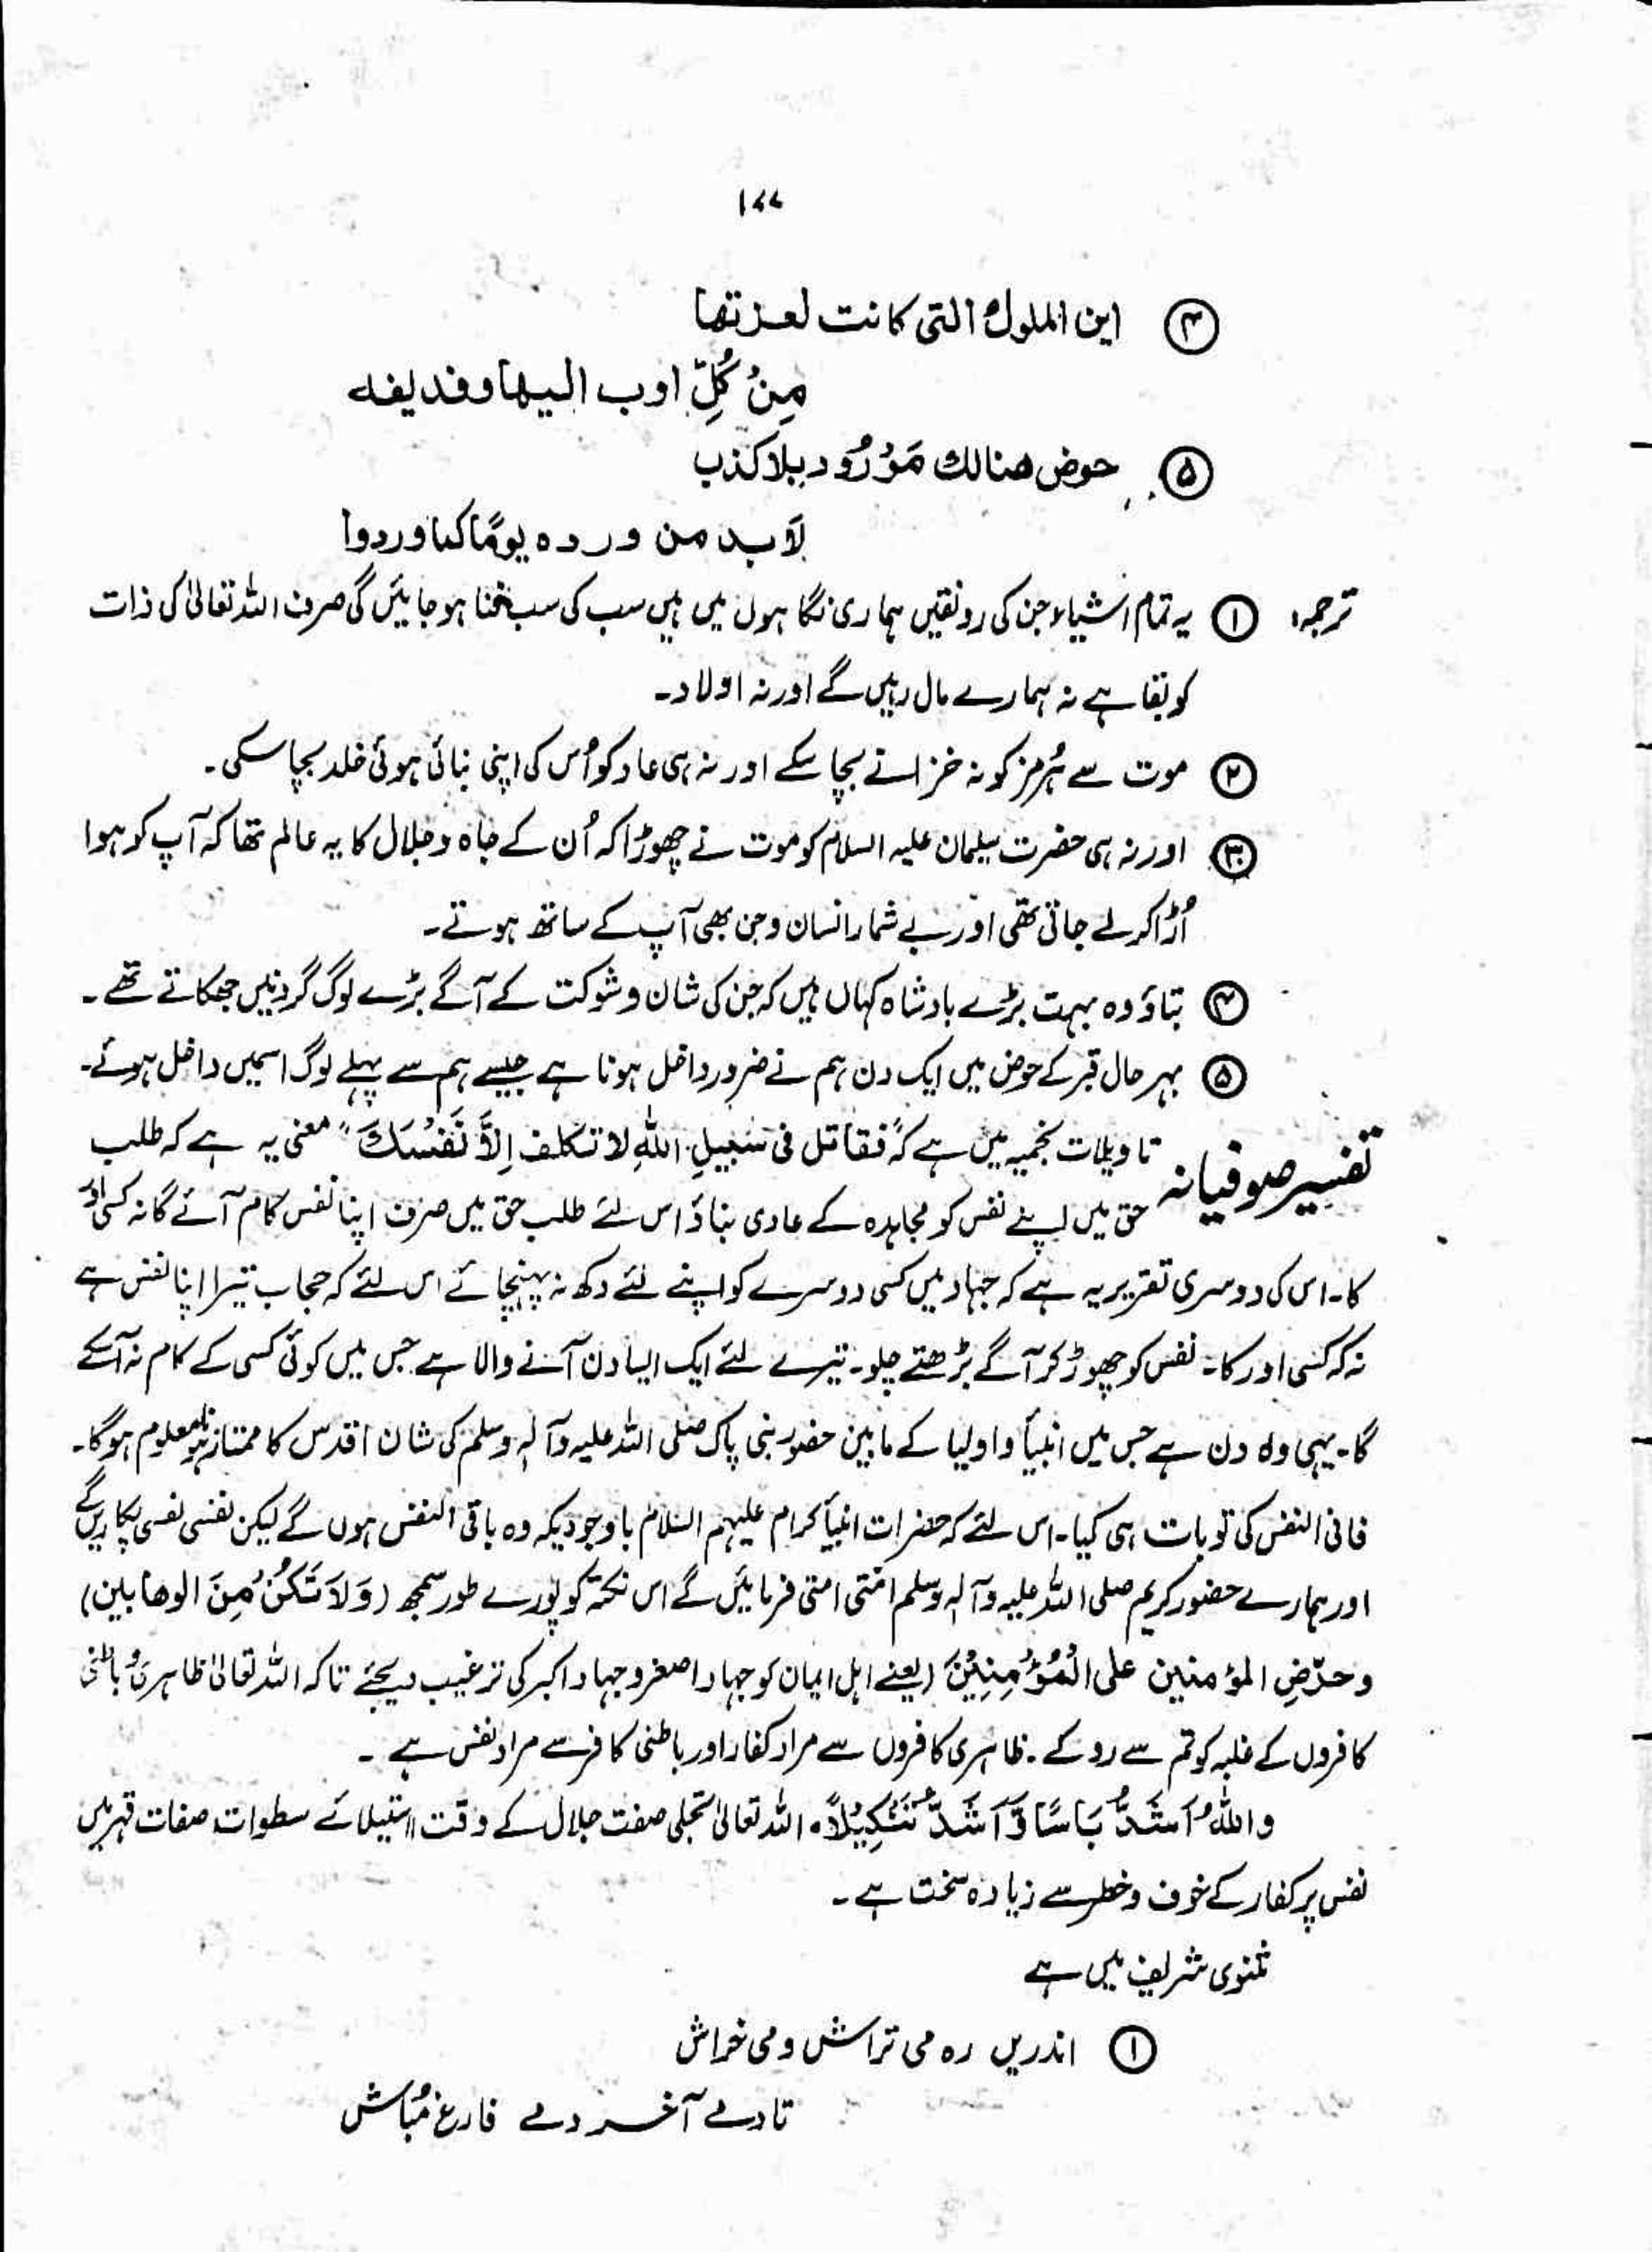 ۱۷۷
④ این الملوك التی کانت لعزتها
مِنْ کُلِّ اوب الیها وفد یفد
⑤ حوض هنالك مَوْرُود بلا کذب
لَا بد من ورده یومًا کما وردوا
ترجمہ: ① یہ تمام اشیاء جن کی رونقیں ہماری نگاہوں میں ہیں سب کی سب فنا ہو جائیں گی صرف اللہ تعالیٰ کی ذات
کو بقا ہے نہ ہمارے مال رہیں گے اور نہ اولاد۔
② موت سے ہُرمز کو نہ خزانے بچا سکے اور نہ ہی عاد کو اُس کی اپنی بنائی ہوئی خلد بچا سکی۔
③ اور نہ ہی حضرت سلیمان علیہ السلام کو موت نے چھوڑا کہ اُن کے جاہ و جلال کا یہ عالم تھا کہ آپ کو ہوا
اُڑا کر لے جاتی تھی اور بے شمار انسان و جن بھی آپ کے ساتھ ہوتے۔
④ بتاؤ وہ بہت بڑے بادشاہ کہاں ہیں کہ جن کی شان و شوکت کے آگے بڑے لوگ گردنیں جھکاتے تھے۔
⑤ بہر حال قبر کے حوض میں ایک دن ہم نے ضرور داخل ہونا ہے جیسے ہم سے پہلے لوگ اسمیں داخل ہوئے۔
تفسیر صوفیانہ تاویلات نجمیہ میں ہے کہ "فقاتل فی سَبِیلِ اللّٰہِ لا تکلف اِلَّا نَفْسَكَ" معنی یہ ہے کہ طلب
حق میں اپنے نفس کو مجاہدہ کے عادی بناؤ اس لئے طلب حق میں صرف اپنا نفس کام آئے گا نہ کسی اور
کا۔ اس کی دوسری تقریر یہ ہے کہ جہاد میں کسی دوسرے کو اپنے لئے دکھ نہ پہنچائے اس لئے کہ حجاب تیرا اپنا نفس ہے
نہ کہ کسی اور کا۔ نفس کو چھوڑ کر آگے بڑھتے چلو۔ تیرے لئے ایک ایسا دن آنے والا ہے جس میں کوئی کسی کے کام نہ آسکے
گا۔ یہی وہ دن ہے جس میں انبیأ و اولیا کے مابین حضور نبی پاک صلی اللہ علیہ وآلہٖ وسلم کی شان اقدس کا ممتاز ہونا معلوم ہوگا۔
فانی النفس کی تو بات ہی کیا۔ اس لئے کہ حضرات انبیأ کرام علیہم السلام باوجودیکہ وہ باقی النفس ہوں گے لیکن نفسی نفسی پکاریں گے
اور ہمارے حضور کریم صلی اللہ علیہ وآلہٖ وسلم امتی امتی فرمائیں گے اس نکتہ کو پورے طور سمجھ (وَلَا تَکُنْ مِنَ الوهابین)
و حرّضِ المؤمنین علی الْمُؤْمِنِیْنَ (یعنے اہل ایمان کو جہاد اصغر و جہاد اکبر کی ترغیب دیجئے تاکہ اللہ تعالیٰ ظاہری و باطنی
کافروں کے غلبہ کو تم سے روکے۔ ظاہری کافروں سے مراد کفار اور باطنی کافر سے مراد نفس ہے۔
واللّٰہُ اَشَدُّ بَاسًا وَّ اَشَدُّ تَنْکِیْلًا۔ اللہ تعالیٰ تجلی صفت جلال کے وقت استیلائے سطوات صفات قہر میں
نفس پر کفار کے خوف و خطر سے زیادہ سخت ہے۔
مثنوی شریف میں ہے
① اندریں رہ می تراش و می خراش
تا دمے آخر دمے فارغ مُباش